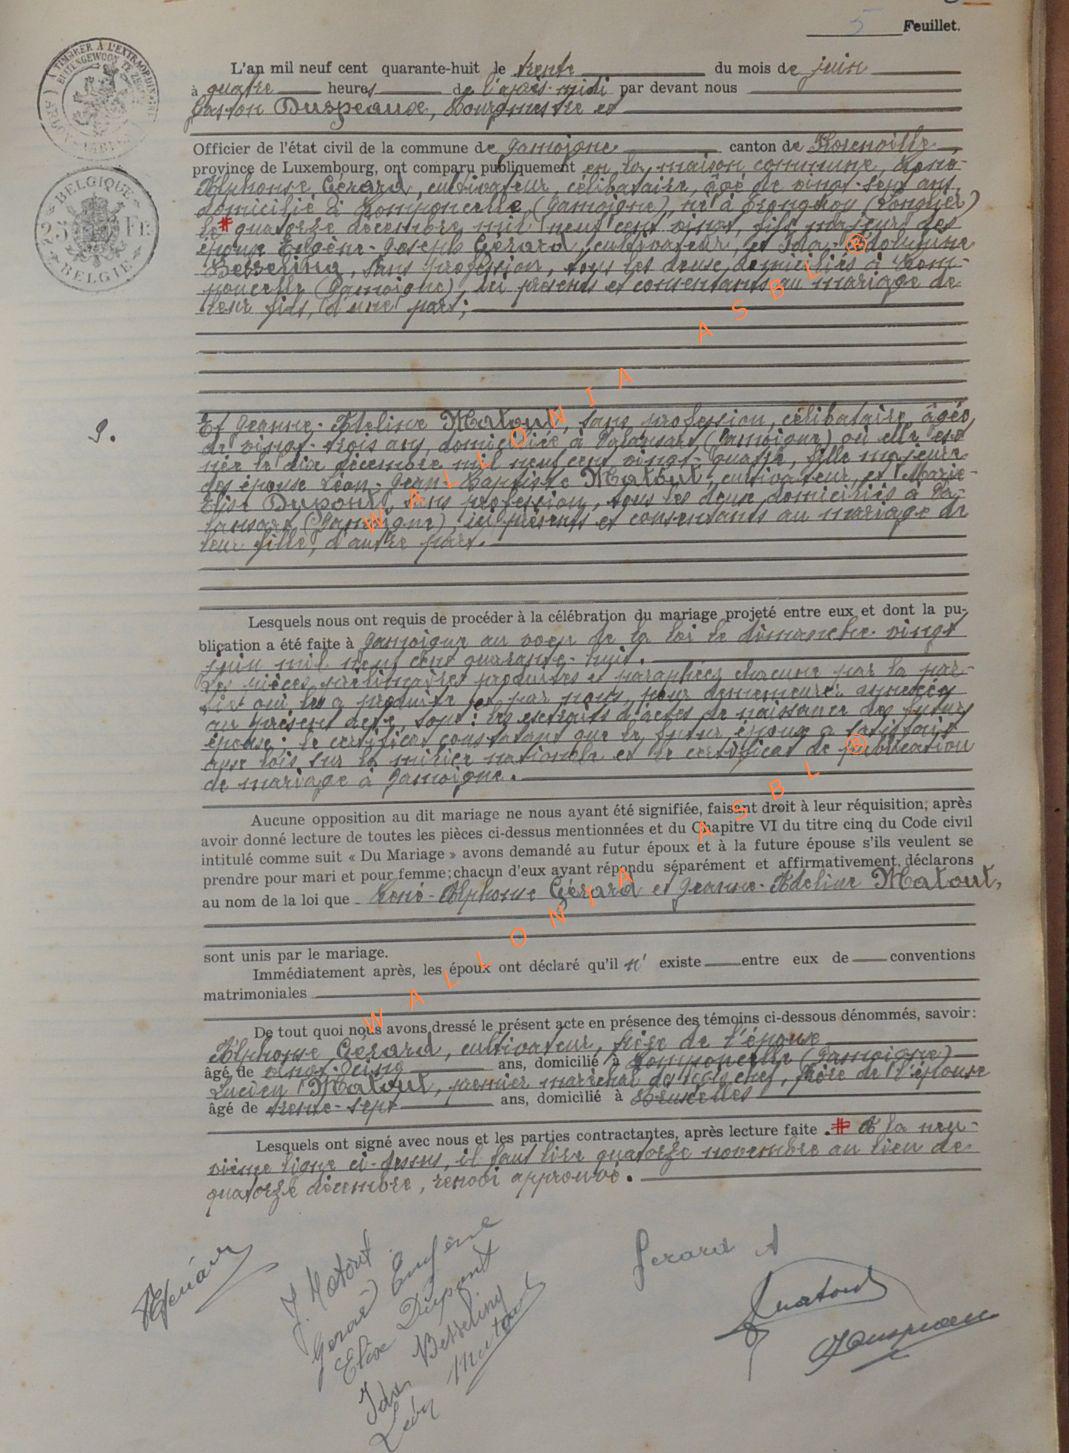 5 Feuillet.
L'an mil neuf cent quarante-huit le trente du mois de juin
à quatre heures de l'après-midi par devant nous
Gaston Duspeaux, Bourgmestre et
Officier de l'état civil de la commune de Jamoigne canton de Florenville,
province de Luxembourg, ont comparu publiquement en la maison commune René-
Alphonse Gérard, cultivateur, célibataire, âgé de vingt-sept ans,
domicilié à Romponcelle (Jamoigne), né à (Longlier)
le # quatorze décembre mil neuf cent vingt, fils majeur des
époux Eugène-Joseph Gérard, cultivateur, et Ida-
Besseling, sans profession, tous les deux domiciliés à Rom-
poncelle (Jamoigne), ici présents et consentants au mariage de
leur fils, d'une part;
9.
Et Jeanne-Adeline Matout, sans profession, célibataire, âgée
de vingt-trois ans, domiciliée à Valansart (Jamoigne) où elle est
née le dix décembre mil neuf cent vingt-quatre, fille majeure
des époux Léon-Jean-Baptiste Matout, cultivateur, et Marie-
Elise Dupont, sans profession, tous les deux domiciliés à Va-
lansart (Jamoigne) ici présents et consentants au mariage de
leur fille, d'autre part.
Lesquels nous ont requis de procéder à la célébration du mariage projeté entre eux et dont la pu-
blication a été faite à Jamoigne au voeu de la loi le dimanche vingt
juin mil neuf cent quarante-huit.
Les pièces préliminaires produites et paraphées chacune par la par-
tie qui les a produite et par nous, pour demeurer annexées
au présent acte, sont: les extraits d'actes de naissance des futurs
époux; le certificat constatant que le futur époux a satisfait
aux lois sur la milice nationale et le certificat de publication
de mariage à Jamoigne.
Aucune opposition au dit mariage ne nous ayant été signifiée, faisant droit à leur réquisition, après
avoir donné lecture de toutes les pièces ci-dessus mentionnées et du Chapitre VI du titre cinq du Code civil
intitulé comme suit « Du Mariage » avons demandé au futur époux et à la future épouse s'ils veulent se
prendre pour mari et pour femme; chacun d'eux ayant répondu séparément et affirmativement, déclarons
au nom de la loi que René-Alphonse Gérard et Jeanne-Adeline Matout,
sont unis par le mariage.
Immédiatement après, les époux ont déclaré qu'il n' existe entre eux de conventions
matrimoniales
De tout quoi nous avons dressé le présent acte en présence des témoins ci-dessous dénommés, savoir:
Alphonse Gérard, cultivateur, frère de l'époux
âgé de vingt-cinq ans, domicilié à Romponcelle (Jamoigne)
Lucien Matout, premier maréchal des logis chef, frère de l'épouse
âgé de trente-sept ans, domicilié à Bruxelles
Lesquels ont signé avec nous et les parties contractantes, après lecture faite. # A la neu-
vième ligne ci-dessus, il faut lire quatorze novembre au lieu de
quatorze décembre, renvoi approuvé.
J. Matout
Gérard Eugène
Elise Dupont
Ida Besseling
Léon Matout
Gerard A
Matout
Duspeaux
BELGIQUE
25 Fr
BELGIE
WALLONIA ASBL ®
WALLONIA ASBL ®